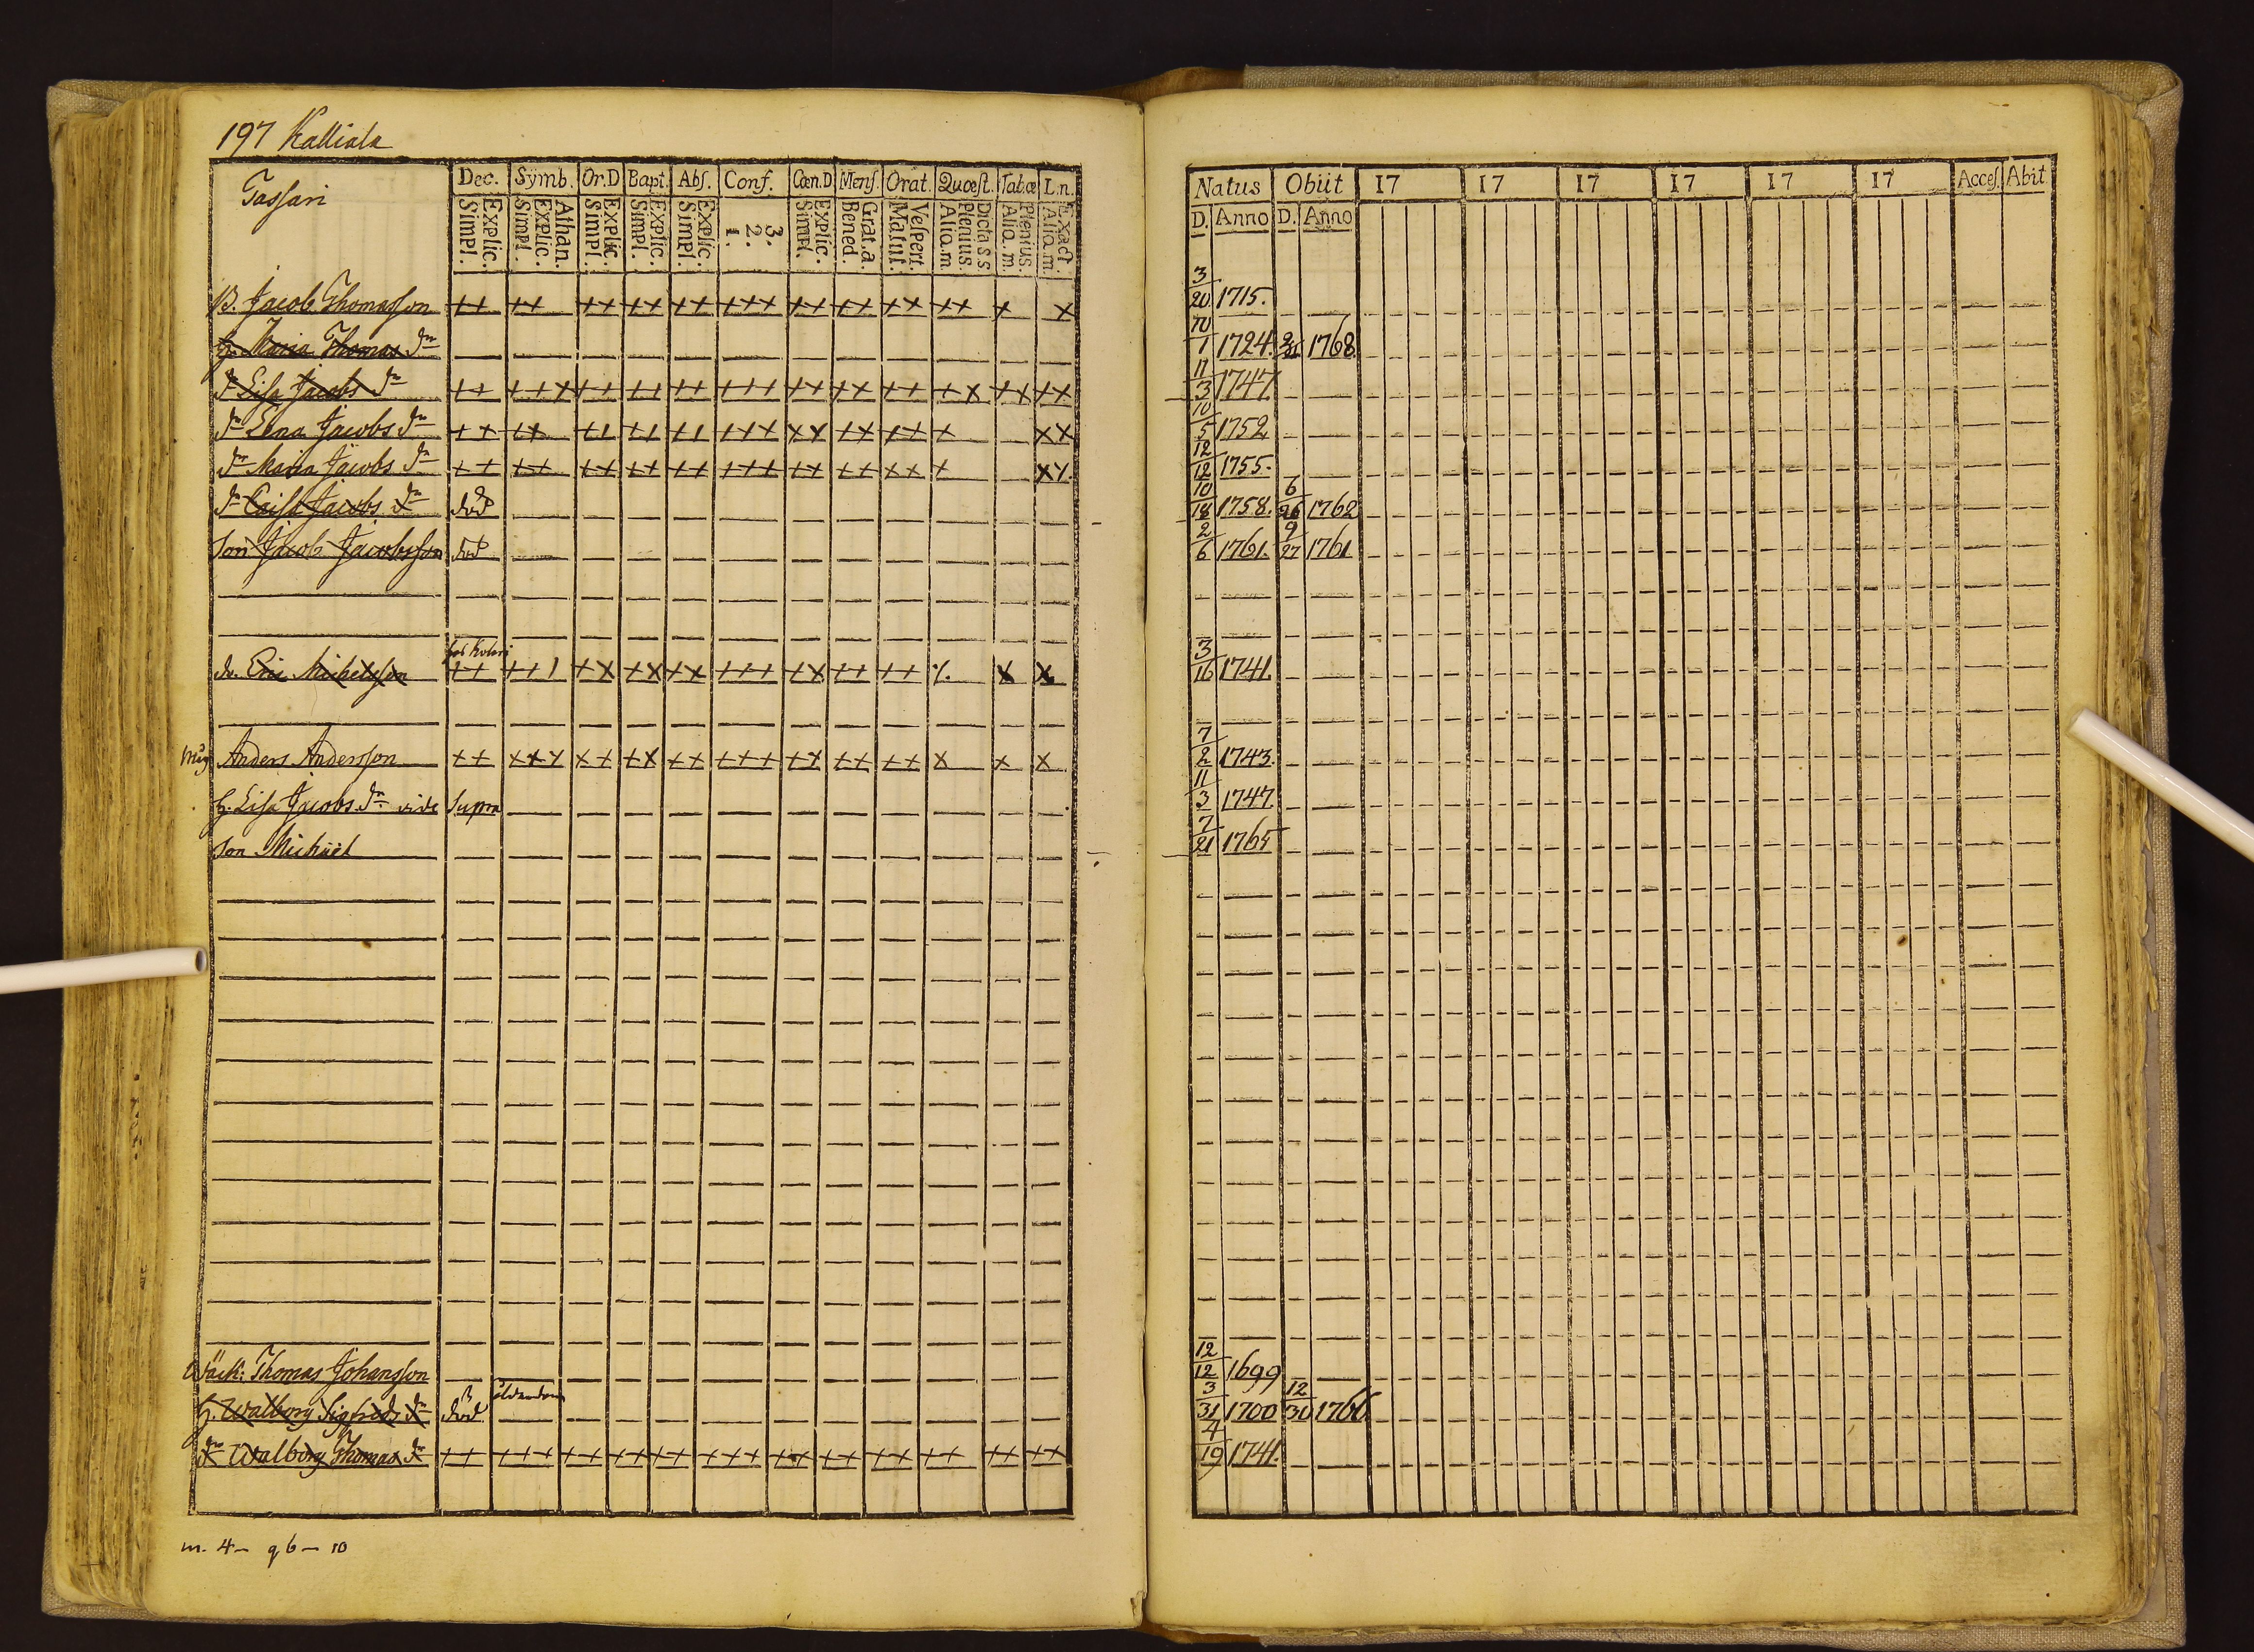 197 Kalliala
Tassari
Dec. Symb. Or.D Bapt. Abs. Conf. Cœn.D Mens. Orat. Quœst. Tab.œ L.n.
Explic. Simpl. Athan. Explic. Simpl. Explic. Simpl. Explic. Simpl. Explic. Simpl. 3. 2. 1. Explic. Simpl. Grat.a. Bened. Vespert. Matut. Dicta s s Plenius. Alia.m Plenius. Alia.m. Exact. Alia.m.
Natus Obiit 17 17 17 17 17 17 Acces. Abit
D. Anno D. Anno
B. Jacob Thomasson ++ ++ ++ ++ ++ +++ ++ ++ ++ ++ + x 3/20 1715.
H. Maria Thomas dr 10/1 1724. 1768.
dr Lisa Jacobs dr ++ +++ ++ ++ ++ +++ ++ ++ ++ ++ ++ ++ 11/3 1747.
dr Lena Jacobs dr ++ ++ ++ ++ ++ +++ xx ++ +++ + xx 10/5 1752
dr Maria Jacobs dr ++ ++ ++ ++ ++ +++ ++ ++ xxx + xx. 12/12 1755.
dr Caisa Jacobs dr död 10/18 1758. 6/26 1762
Son Jacob Jacobsson död 2/6 1761. 9/27 1761
dr. Eric Michelsson ++ +++ ++ ++ ++ +++ ++ ++ ++ %. x x 3/16 1741.
Måg Anders Andersson ++ +++ ++ ++ ++ +++ ++ ++ ++ x x x 7/2 1743.
H. Lisa Jacobs dr vide Supra 11/3 1747
Son Michäel 7/21 1765
Thomas Johansson 12/12 1699
H. Walborg Sigfrids dr död ålderdom 3/31 1700 12/30 1766
dr Walborg Thomas dr ++ +++ ++ ++ ++ +++ ++ ++ ++ ++ ++ ++ 4/19 1741.
m. 4 — q 6 — 10